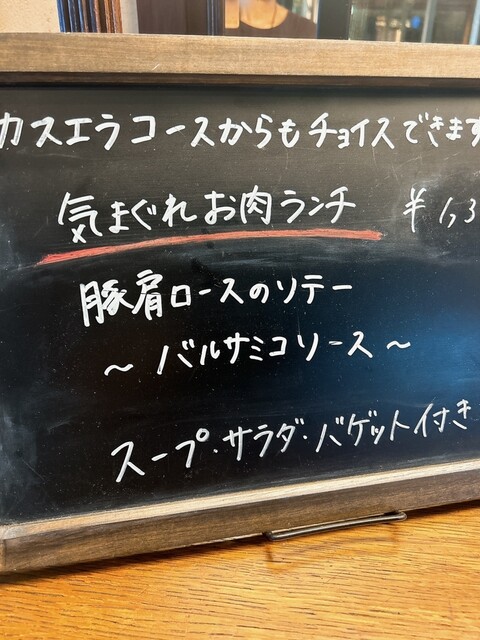 カスエラコースからもチョイスできます
気まぐれお肉ランチ ¥1,3
豚肩ロースのソテー
〜 バルサミコソース 〜
スープ・サラダ・バゲット付き